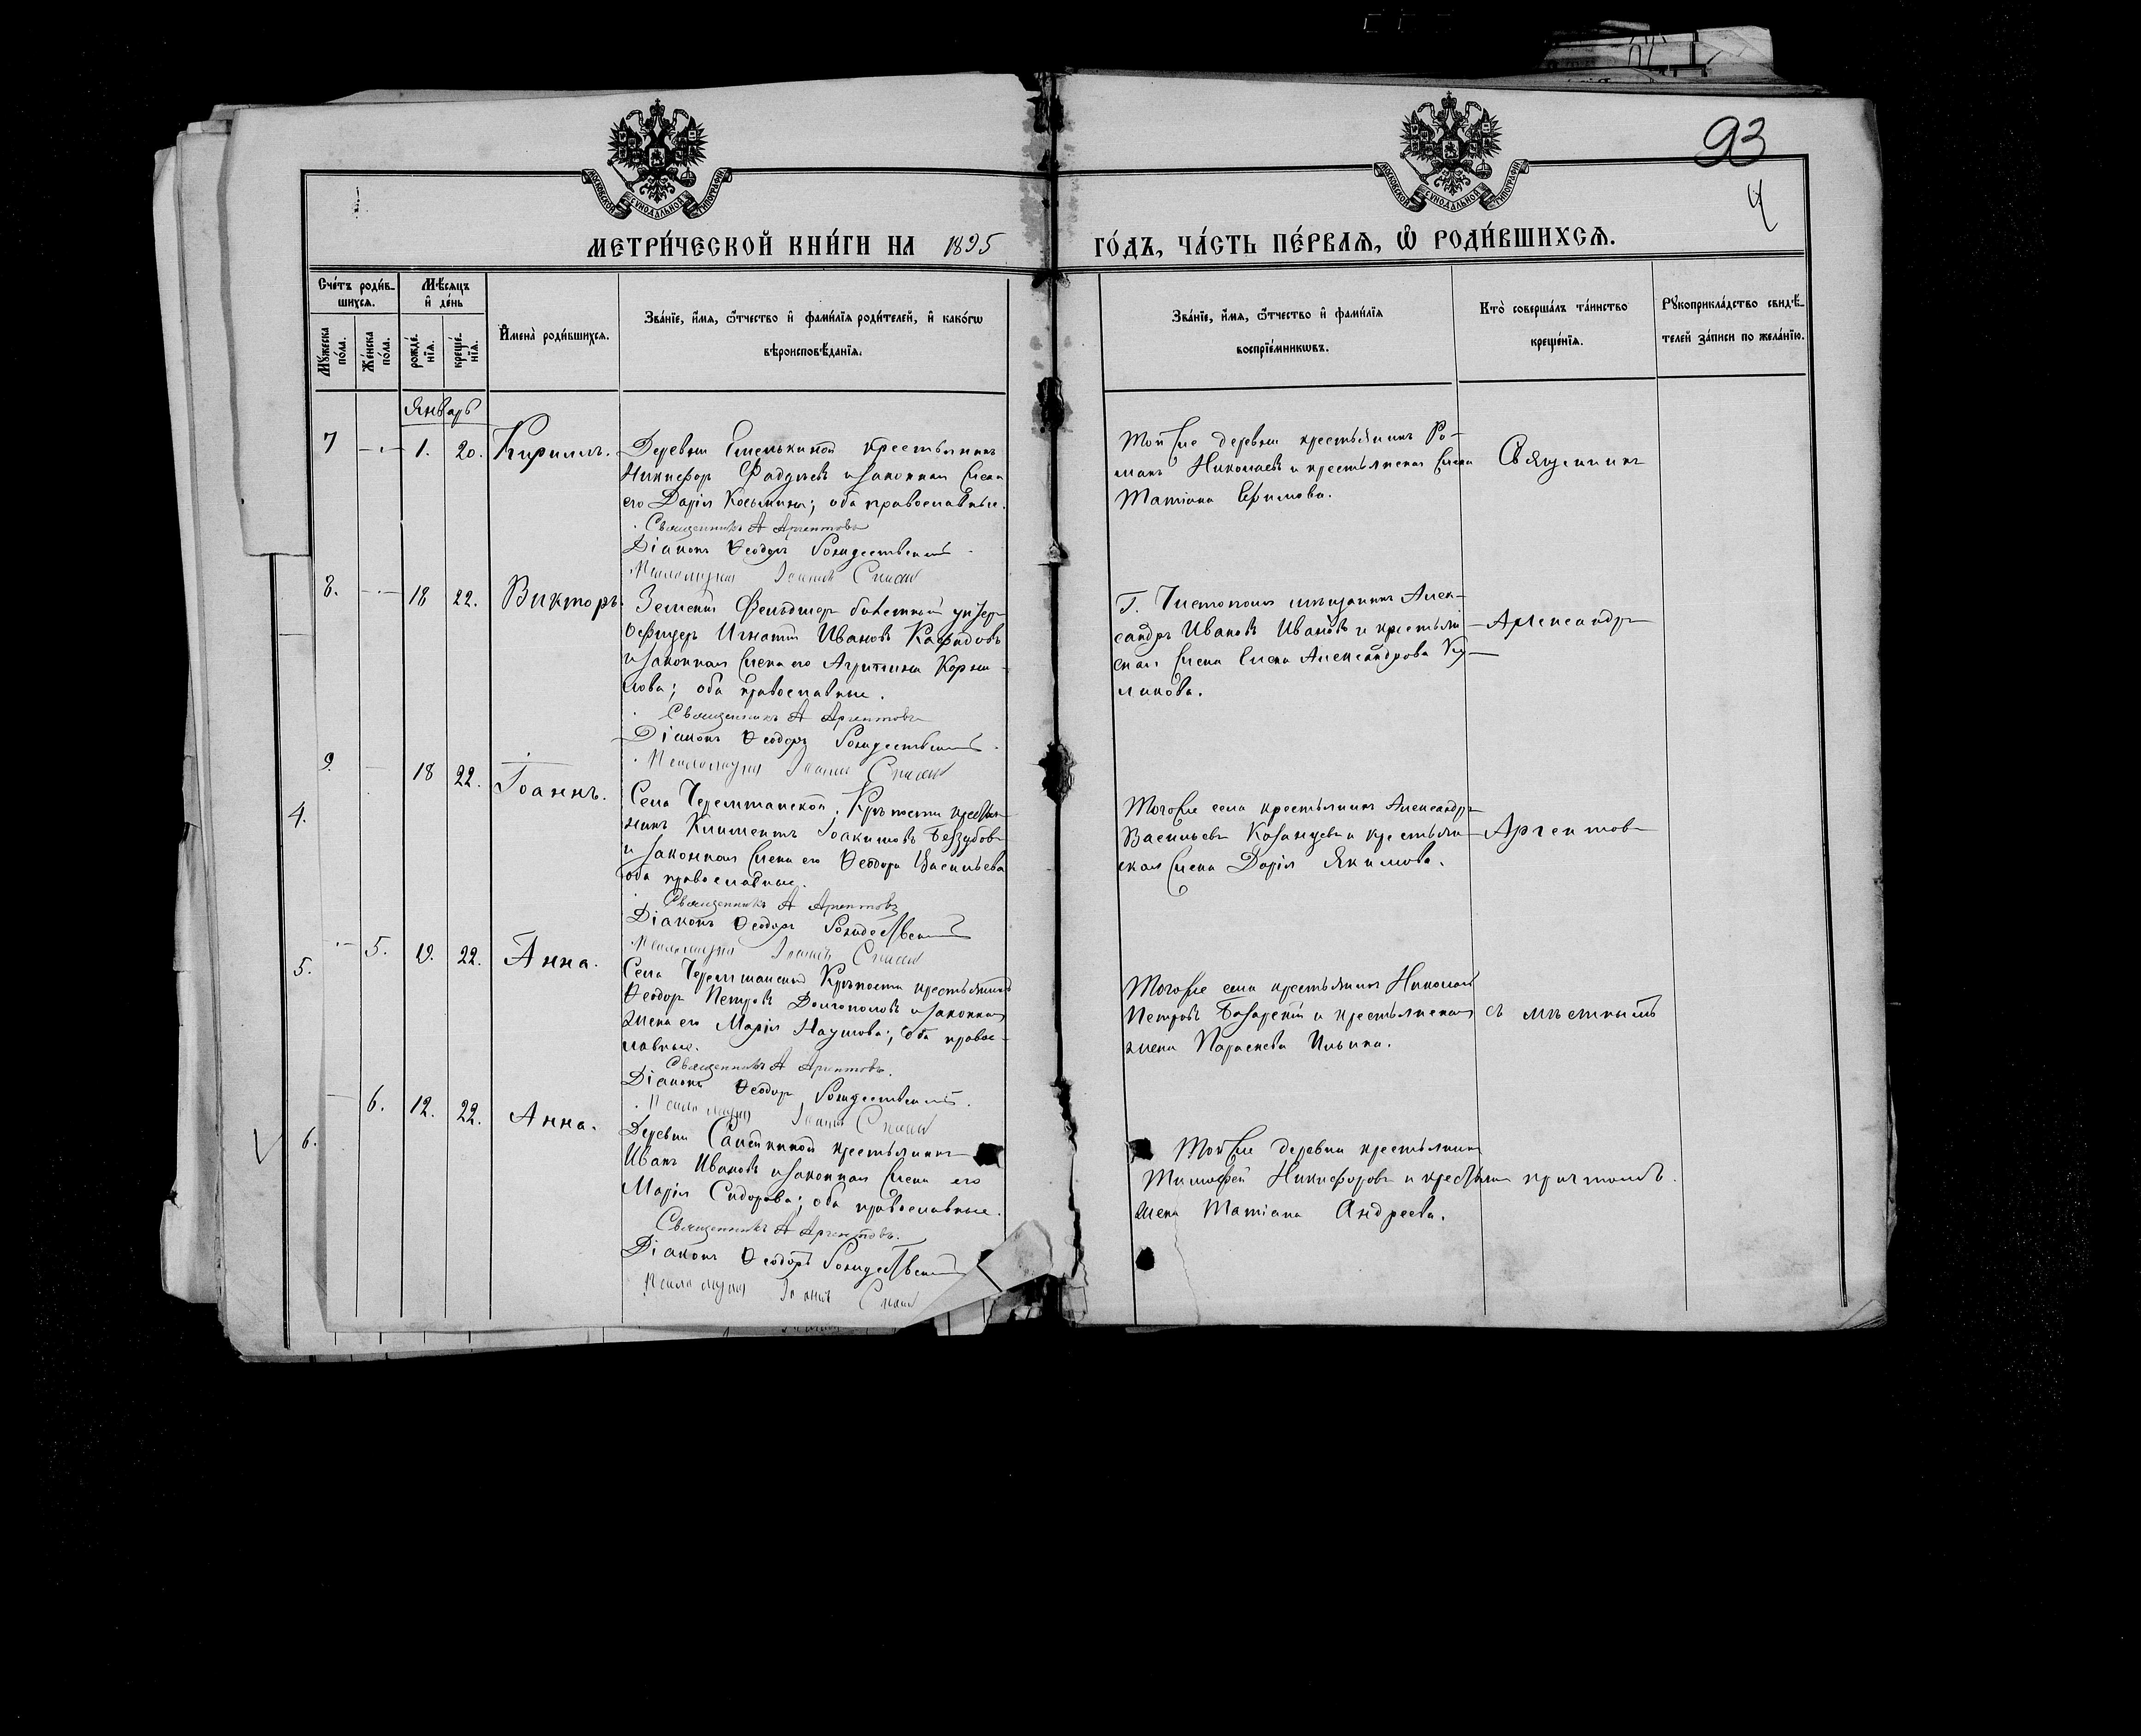 93
4
МОСКОВСКОЙ СѴНОДАЛЬНОЙ ТИПОГРАФІИ
МОСКОВСКОЙ СѴНОДАЛЬНОЙ ТИПОГРАФІИ
МЕТРИ́ЧЕСКОЙ КНИ́ГИ НА 1895 ГО́ДЪ, ЧА́СТЬ ПЕ́РВАЯ, Ѡ҆ РОДИ́ВШИХСѦ.
Сче́тъ роди́в-
шихсѧ.
Мꙋ́жеска по́ла.
Же́нска по́ла.
Мѣ́сѧцъ
и҆ де́нь
рожде́нїѧ.
креще́нїѧ.
И҆мена̀ роди́вшихсѧ.
Зва́нїе, и҆́мѧ, ѻ҆́тчество и҆ фами́лїѧ роди́телей, и҆ како́гѡ
вѣроисповѣ́данїѧ.
Зва́нїе, и҆́мѧ, ѻ҆́тчество и҆ фами́лїѧ
воспрїе́мникѡвъ.
Кто̀ соверша́лъ та́инство
креще́нїѧ.
Рꙋкоприкла́дство свидѣ́-
телей за́писи по жела́нїю.
Январь
7 1. 20. Кириллъ.
Деревни Емелькиной крестьянинъ
Никифоръ Фадѣевъ и законная жена
его Дарія Косьмина; оба православные.
Священникъ А Аргентовъ
Діаконъ Ѳеодоръ Рождественскій
Псаломщикъ Іоаннъ
Той же деревни крестьянинъ Ро-
манъ Николаевъ и крестьянская жена
Татіана Ефимова.
Священникъ
8. 18 22. Викторъ.
Земскій Фельдшеръ билетный унтеръ
Офицеръ Игнатій Ивановъ
и законная жена его Агрипина Корни-
лова; оба православные.
Священникъ А Аргентовъ
Діаконъ Ѳеодоръ Рождественскій
Псаломщикъ Іоаннъ
Г. Чистополя мѣщанинъ Алек-
сандръ Ивановъ Ивановъ и крестьян-
ская жена Елена Александрова Ку-
ликова.
Александръ
9. 18 22. Іоаннъ.
4.
Села Черемшанской Крѣпости крестья-
нинъ Климентъ Іоакимовъ Беззубовъ
и законная жена его Ѳеодора Васильева
оба православные.
Священникъ А Аргентовъ
Діаконъ Ѳеодоръ Рождественскій
Псаломщикъ Іоаннъ
Того же села крестьянинъ Александръ
Васильевъ Казанцевъ и крестьян-
ская жена Дарія Якимова.
Аргентовъ
5. 22. Анна.
5.
Села Черемшанской Крѣпости крестьянинъ
Ѳеодоръ Петровъ Долгополовъ и законная
жена его Марія Наумова; оба право-
славные.
Священникъ А Аргентовъ.
Діаконъ Ѳеодоръ Рождественскій.
Псаломщикъ Іоаннъ
Того же села крестьянинъ Николай
Петровъ и крестьянская
жена Параскева Ильина.
съ мѣстнымъ
6. 12. 22. Анна.
6.
Деревни крестьянинъ
Иванъ Ивановъ и законная жена его
Марія Сидорова; оба православные.
Священникъ А Аргентовъ.
Діаконъ Ѳеодоръ Рождественскій
Псаломщикъ Іоаннъ
Той же деревни крестьянинъ
Тимофей Никифоровъ и крестьян
жена Татіана Андреева.
причтомъ.